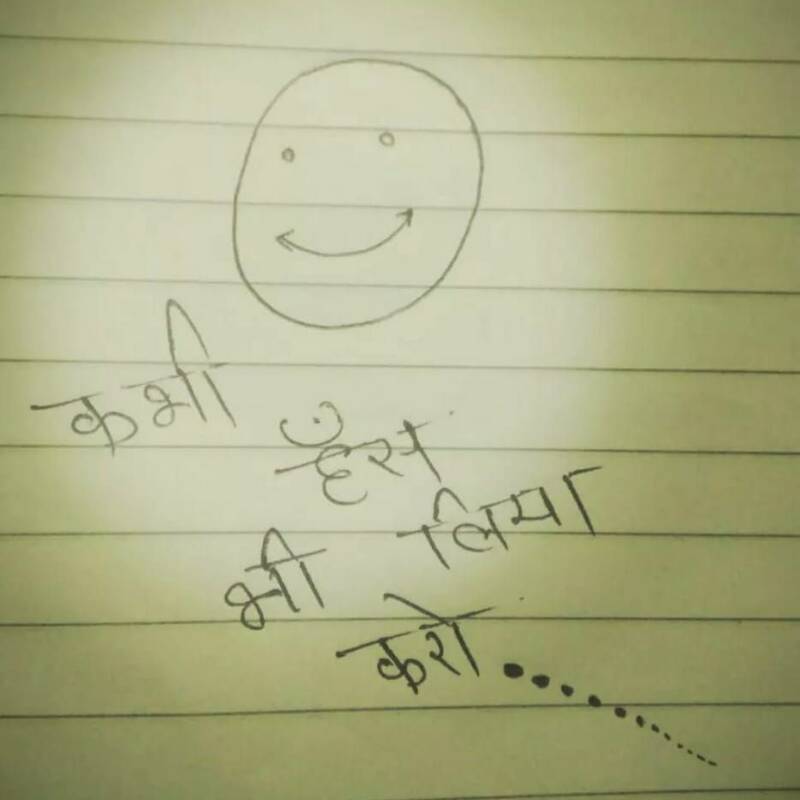 कभी हँस
भी लिया
करो..............